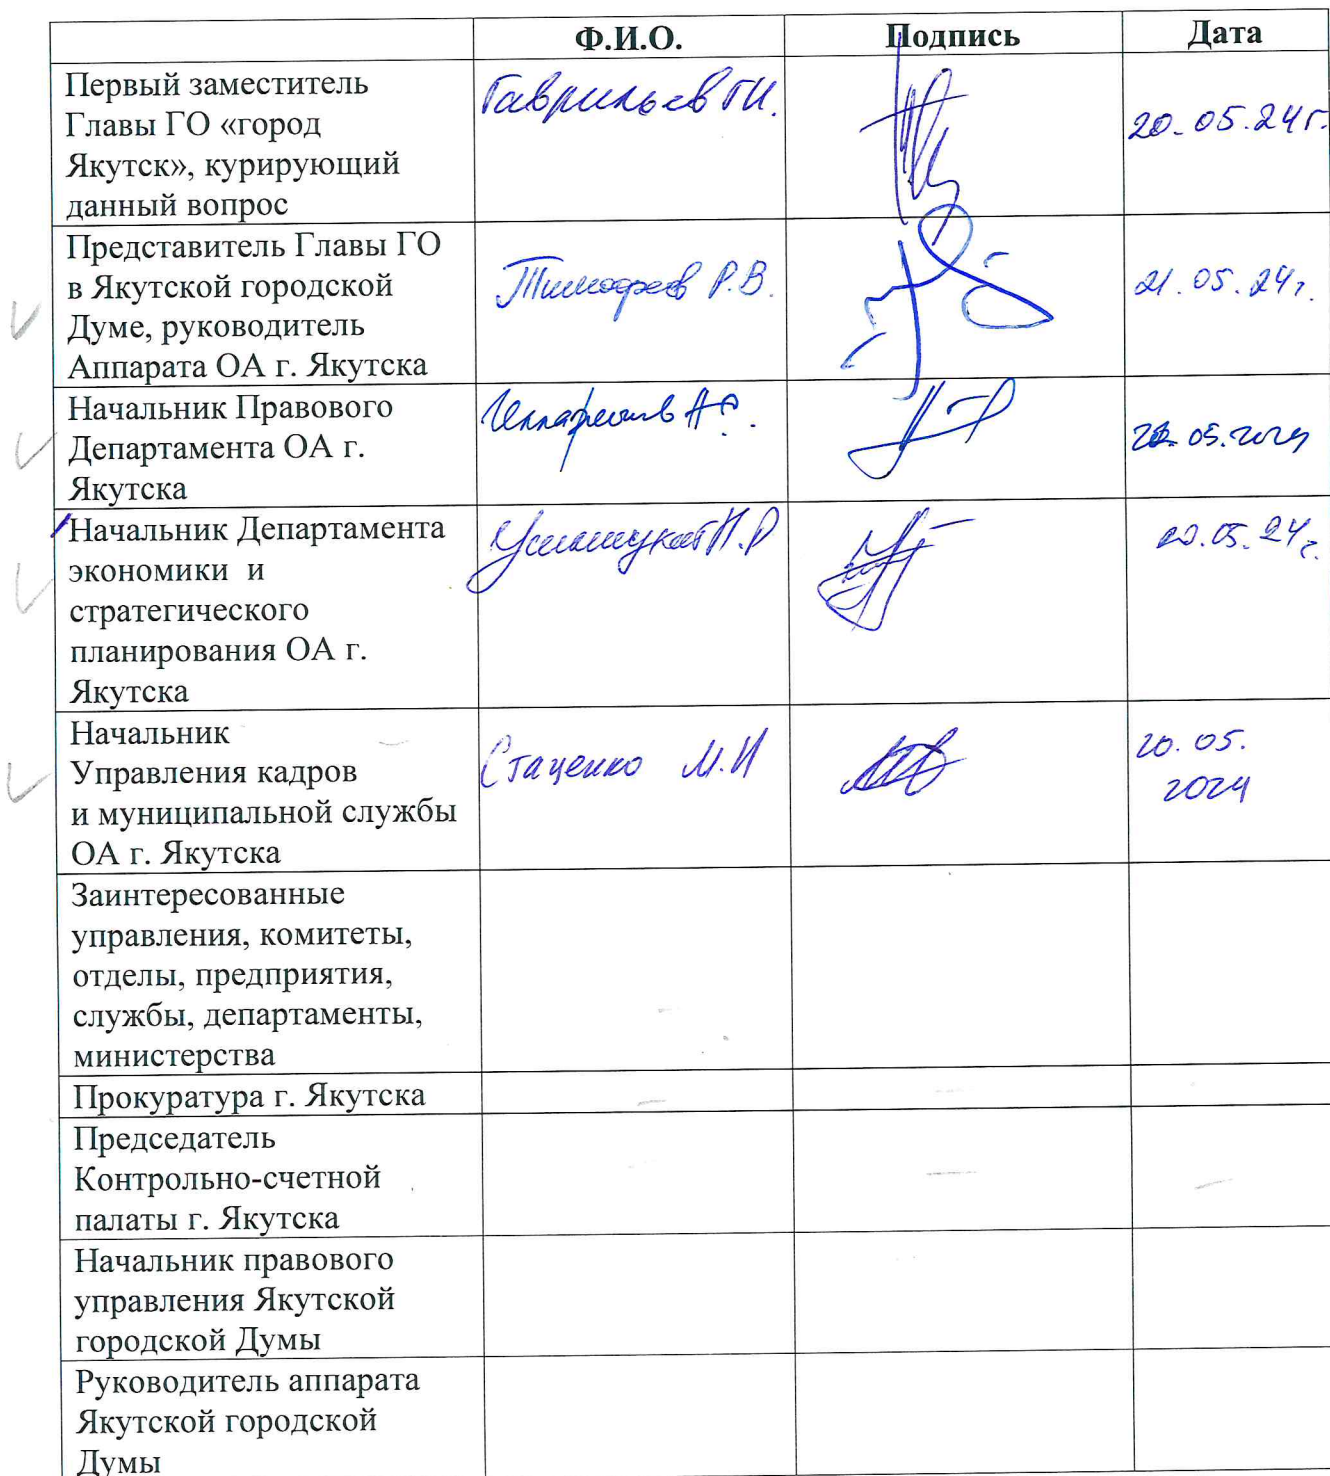 Ф.И.О. Подпись Дата
Первый заместитель
Главы ГО «город
Якутск», курирующий
данный вопрос
Гаврильев Г.И.
20.05.24г.
Представитель Главы ГО
в Якутской городской
Думе, руководитель
Аппарата ОА г. Якутска
Тимофеев Р.В.
21.05.24г.
Начальник Правового
Департамента ОА г.
Якутска
05.2024
Начальник Департамента
экономики и
стратегического
планирования ОА г.
Якутска
20.05.24г.
Начальник
Управления кадров
и муниципальной службы
ОА г. Якутска
Стаценко М.И
20.05.
2024
Заинтересованные
управления, комитеты,
отделы, предприятия,
службы, департаменты,
министерства
Прокуратура г. Якутска
Председатель
Контрольно-счетной
палаты г. Якутска
Начальник правового
управления Якутской
городской Думы
Руководитель аппарата
Якутской городской
Думы